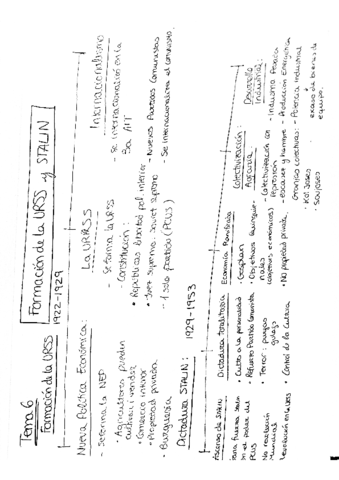 Tema 6
Formación de la URSS y STALIN
Formación de la URSS 1922-1929
Nueva Política Económica:
- Se termina la NEP
• Agricultores pueden
cultivar y vender
• Comercio interior
• Propiedad privada
• Burguesía
La URSS
- Se forma la URSS
- Constitución:
• Repúblicas libertad pol. interior
• Soviet Supremo
- 1 solo partido (PCUS)
Internacionalismo
- Se internacionalizó en la
3a AIT
- Nuevos Partidos Comunistas
- Se internacionaliza el comunismo
Dictadura STALIN: 1929-1953
Ascenso de STALIN
Toma fuerza
en el poder del
PCUS
No revolución
Mundial
Revolución en la URSS
Dictadura totalitaria
• Culto a la personalidad
• Refuerzo Partido Comunista
• Terror: purgas
gulags
• Control de la Cultura
Economía Planificada
• Gosplan
• Objetivos quinque-
nales
(objetivos económicos)
• No propiedad privada
Colectivización
Agraria
- Colectivización
represión
- Escasez y hambre
- Granjas colectivas:
• Koljoses
• Sovjoses
Desarrollo
Industrial:
- Industria Pesada
- Producción Energética
- Potencia Industrial
escaso de bienes de
equipo